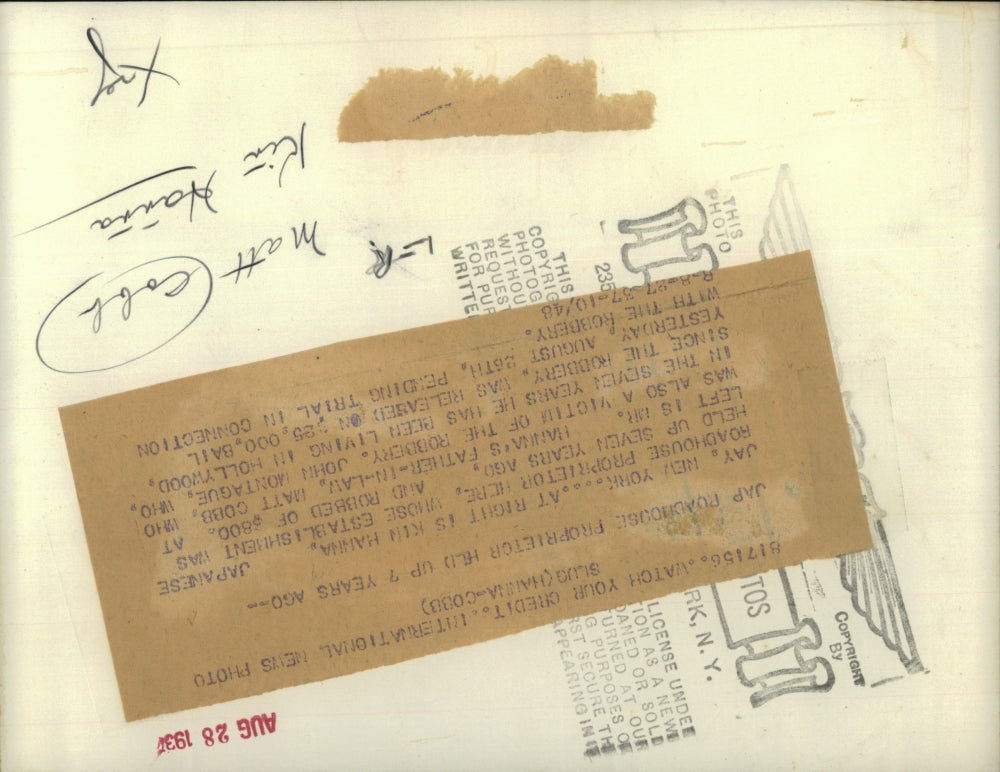 817156..WATCH YOUR CREDIT..INTERNATIONAL NEWS PHOTO
SLUG(HANNA-COBB)
JAP ROADHOUSE PROPRIETOR HLD UP 7 YEARS AGO--
JAY, NEW YORK....AT RIGHT IS KIN HANNA, JAPANESE
ROADHOUSE PROPRIETOR HERE, WHOSE ESTABLISHMENT WAS
HELD UP SEVEN YEARS AGO, AND ROBBED OF $800. AT
LEFT IS MR. HANNA'S FATHER-IN-LAW, MATT COBB, WHO
WAS ALSO A VICTIM OF THE ROBBERY. JOHN MONTAGUE, WHO,
IN THE SEVEN YEARS HE HAS BEEN LIVING IN HOLLYWOOD,
SINCE THE ROBBERY, WAS RELEASED ON $25,000, BAIL
YESTERDAY, AUGUST 26TH, PENDING TRIAL IN CONNECTION
WITH THE ROBBERY.
R-8-27-37-10/48
L-R.
Matt Cobb
Kin Hanna
AUG 28 193
THIS
PHOTO
235
TOS
RK, N. Y.
COPYRIGHT
BY
THIS
COPYRIG
PHOTOG
WITHOU
REQUEST
FOR PUR
WRITTE
LICENSE UNDER
TION AS A NEW
OANED OR SOLD
TURNED AT OUR
G PURPOSES O
RST SECURE TH
APPEARING IN